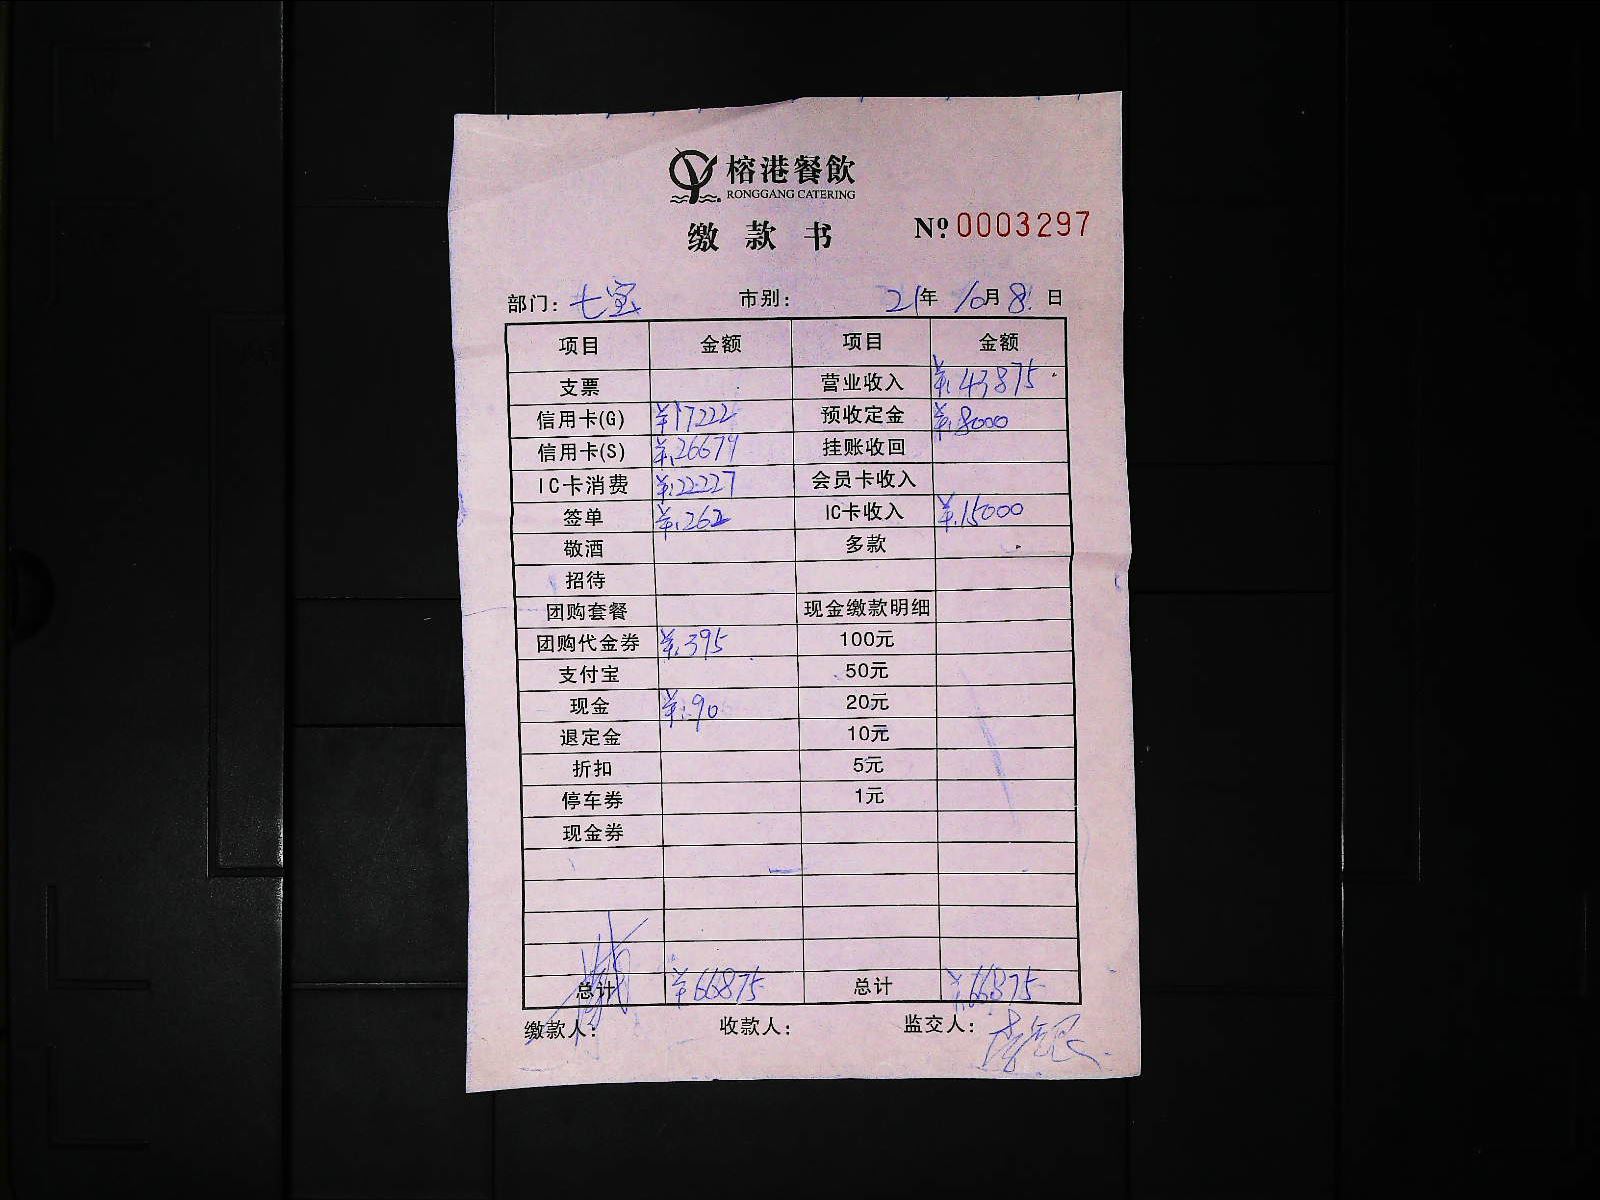 榕港餐飲
RONGGANG CATERING
缴款书 №0003297
部门：七宝 市别： 21年10月8日
项目 金额 项目 金额
支票 营业收入 ¥43875
信用卡(G) ¥17222 预收定金 ¥8000
信用卡(S) ¥26679 挂账收回
IC卡消费 ¥22227 会员卡收入
签单 ¥262 IC卡收入 ¥15000
敬酒 多款
招待
团购套餐 现金缴款明细
团购代金券 ¥395 100元
支付宝 50元
现金 ¥90 20元
退定金 10元
折扣 5元
停车券 1元
现金券
总计 ¥66875 总计 ¥66875
缴款人： 收款人： 监交人：